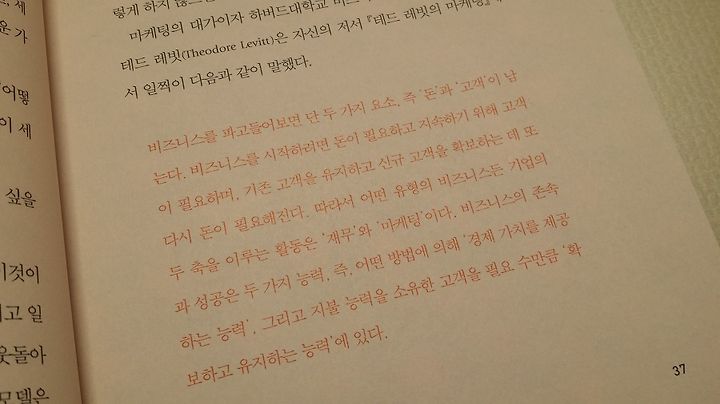 세
운 가
어떻
이 세
싶을
이것이
고 일
웃돌아
모델은
렇게 하지 않으
마케팅의 대가이자 하버드대학교
테드 레빗(Theodore Levitt)은 자신의 저서 『테드 레빗의 마케팅』
서 일찍이 다음과 같이 말했다.
비즈니스를 파고들어보면 단 두 가지 요소, 즉 '돈'과 '고객'이 남
는다. 비즈니스를 시작하려면 돈이 필요하고 지속하기 위해 고객
이 필요하며, 기존 고객을 유지하고 신규 고객을 확보하는 데 또
다시 돈이 필요해진다. 따라서 어떤 유형의 비즈니스든 기업의
두 축을 이루는 활동은 '재무'와 '마케팅'이다. 비즈니스의 존속
과 성공은 두 가지 능력, 즉, 어떤 방법에 의해 '경제 가치를 제공
하는 능력', 그리고 지불 능력을 소유한 고객을 필요 수만큼 '확
보하고 유지하는 능력'에 있다.
37